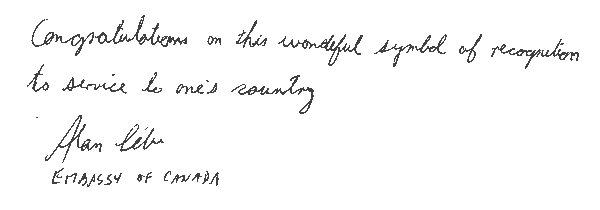 Congratulations on this wonderful symbol of recognition
to service to one's country
Alan
EMBASSY OF CANADA